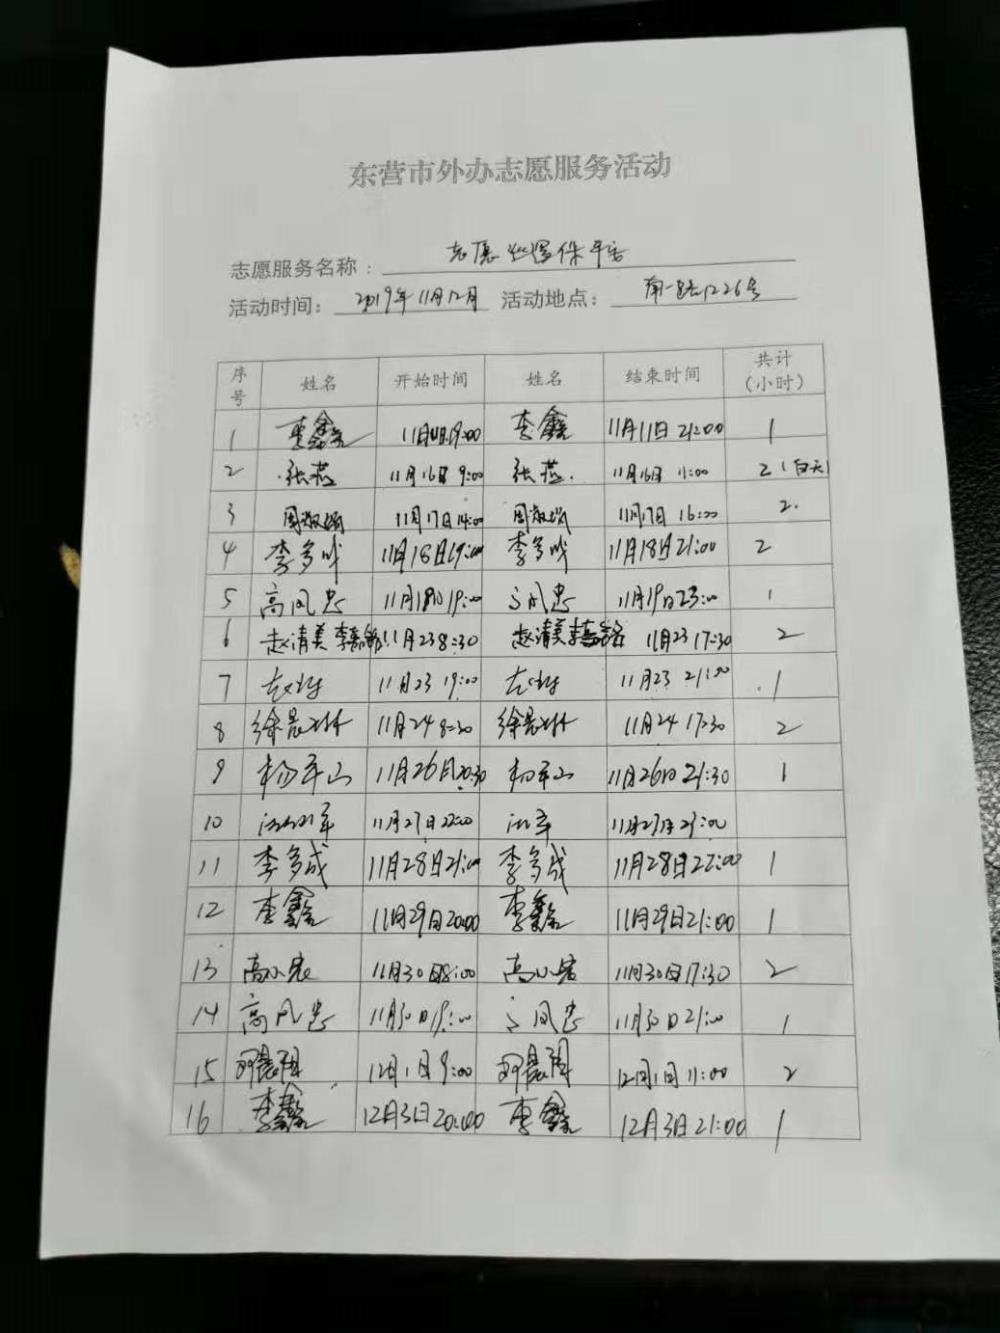 东营市外办志愿服务活动
志愿服务名称：志愿巡逻保平安
活动时间：2019年11月12月 活动地点：南一路1226号
序号 姓名 开始时间 姓名 结束时间 共计（小时）
1 李鑫 19:00 李鑫 11月11日 21:00 1
2 张燕 11月16日 9:00 张燕 11月16日 11:00 2（白天）
3 11月17日14:00 11月17日 16:00 2
4 李多成 11月18日19:00 李多成 11月18日21:00 2
5 高风忠 19:00 高风忠 11月19日23:00 1
6 赵清美 11月23 8:30 赵清美 11月23 17:30 2
7 11月23 19:00 11月23 21:00 1
8 徐晨 11月24 8:30 徐晨 11月24 17:30 2
9 杨军山 11月26日20:30 杨军山 11月26日21:30 1
10 11月27日22:00 11月27日 21:00
11 李多成 11月28日21:00 李多成 11月28日22:00 1
12 李鑫 11月29日20:00 李鑫 11月29日21:00 1
13 高小宏 11月30日8:00 高小宏 11月30日17:30 2
14 高风忠 11月30日19:00 高风忠 11月30日21:00 1
15 12月1日 9:00 12月1日 11:00 2
16 李鑫 12月3日20:00 李鑫 12月3日21:00 1